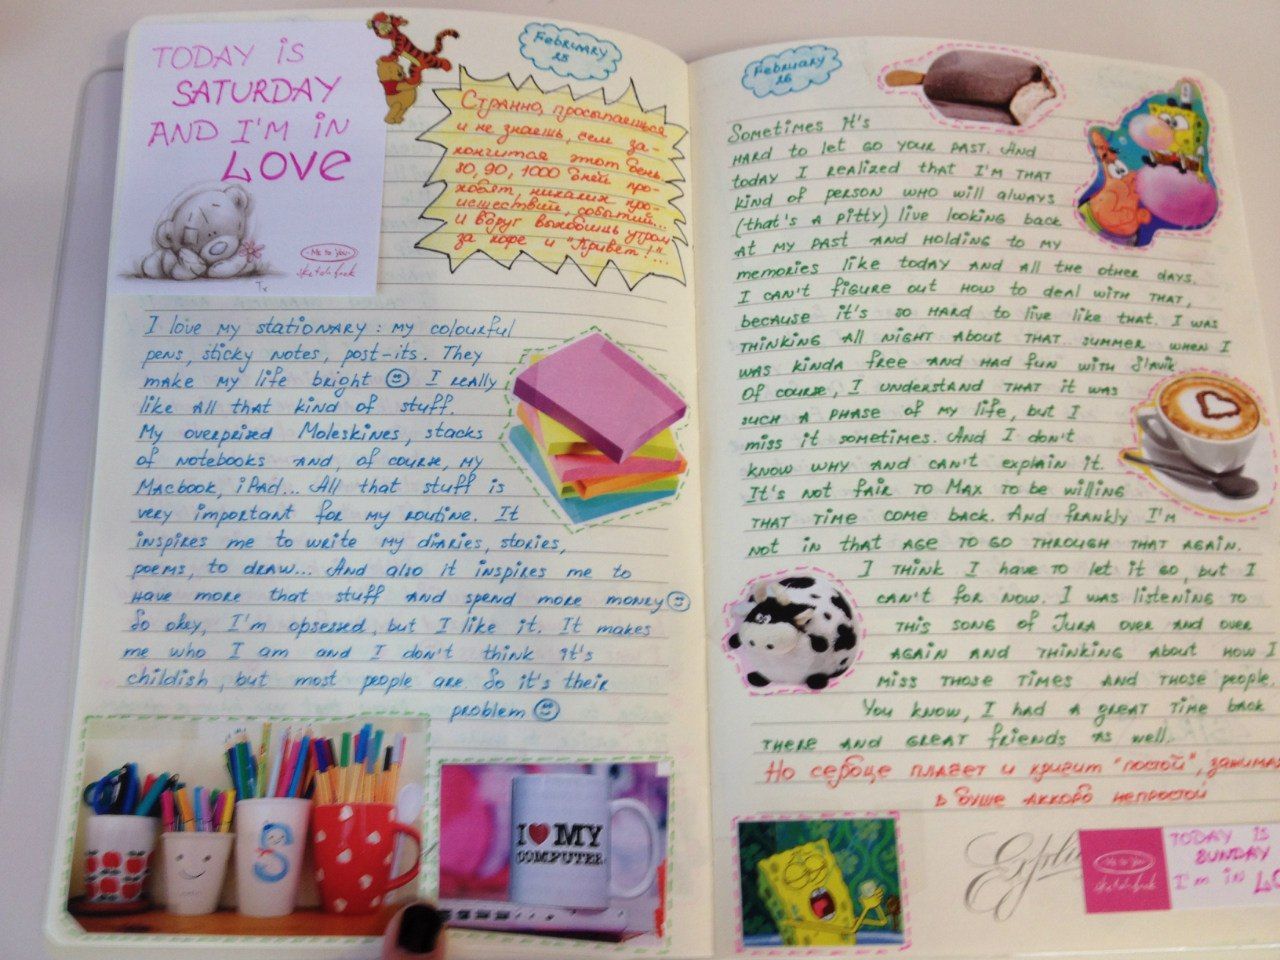 TODAY IS
SATURDAY
AND I'M IN
LOVE
Me to You
sketchbook
February
25
Странно, просыпаешься
и не знаешь, чем за-
кончится этот день
80, 90, 1000 дней про-
ходят, никаких про-
исшествий, событий...
и вдруг выходишь утром
за кофе и "Привет!"...
I love my stationary: my colourful
pens, sticky notes, post-its. They
make my life bright ☺ I really
like all that kind of stuff.
My overprised Moleskines, stacks
of notebooks and, of course, my
Macbook, iPad... All that stuff is
very important for my routine. It
inspires me to write my diaries, stories,
poems, to draw... And also it inspires me to
have more that stuff and spend more money ☺
So okey, I'm opsessed, but I like it. It makes
me who I am and I don't think it's
childish, but most people are. So it's their
problem ☺
S
I ♥ MY
COMPUTER
February
26
Sometimes it's
hard to let go your past. And
today I realized that I'm that
kind of person who will always
(that's a pitty) live looking back
at my past and holding to my
memories like today and all the other days.
I can't figure out how to deal with that,
because it's so hard to live like that. I was
thinking all night about that summer when I
was kinda free and had fun with Slavik.
Of course, I understand that it was
such a phase of my life, but I
miss it sometimes. And I don't
know why and can't explain it.
It's not fair to Max to be willing
that time come back. And frankly I'm
not in that age to go through that again.
I think I have to let it go, but I
can't for now. I was listening to
this song of Jura over and over
again and thinking about how I
miss those times and those people.
You know, I had a great time back
there and great friends as well.
Но сердце плачет и кричит "постой", зажимая
в душе аккорд непростой
Me to You
sketchbook
TODAY IS
SUNDAY
I'm in